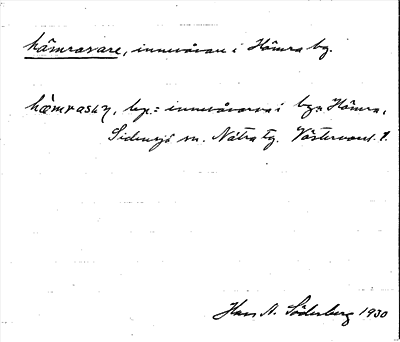 hâmrasare, innevånare i Hâmra by.
hàmrasàr, be.: innevånarna i byn Hâmra,
Sidensjö sn. Nätra tg. Västernorrl. l.
Hans A. Söderberg 1930